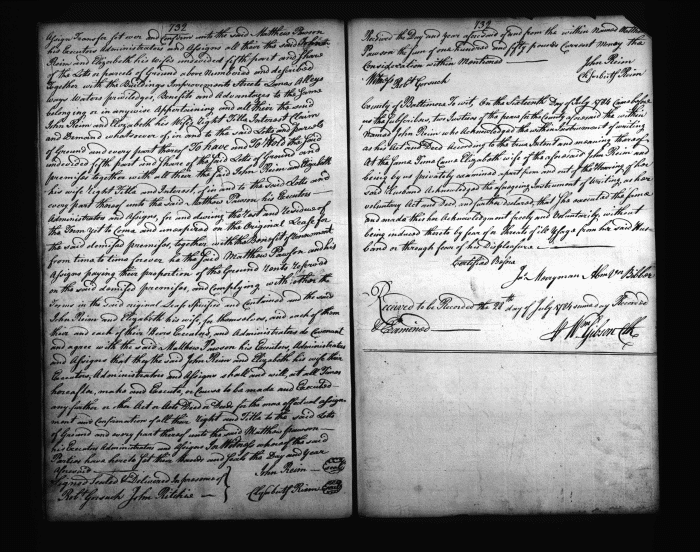 732
Assign Transfer set over and Confirm unto the said Matthew Pawson
his Executors Administrators and Assigns all their the said John
Reim and Elizabeth his Wifes undivided fifth part and Share
of the Lots or parcels of Ground above Numbered and described
Together with the Buildings Improvements Streets Lanes Alleys
Ways Waters priviledges, Benefits and Advantages to the same
belonging or in anywise Appertaining and all their the said
John Reim and Elizabeth his Wifes Right Title Interest Claim
and Demand whatsoever of in and to the said Lots and parcels
of Ground and every part thereof To have and To Hold the said
undivided fifth part and Share of the said Lots of Ground and
premises together with all their the said John Reim and Elizabeth
his wife Right Title and Interest, of in and to the said Lots and
every part thereof unto the said Matthew Pawson his Executors
Administrators and Assigns, for and during the Rest and Residue of
the Term yet to Come and unexpired on the Original Lease for
the said demised premises, together with the Benefit of renewment
from time to time forever he the said Matthew Pawson and his
Assigns paying their proportion of the Ground Rents reserved
on the said demised premises, and Complying with other the
in the said original Lease Specified and Contained and the said
John Reim and Elizabeth his wife, for themselves, and each of them
their and each of their Heirs Executors and Administrators do Covenant
and agree with the said Matthew Pawson his Executors, Administrators
and Assigns that they the said John Reim and Elizabeth his wife their
Executors, Administrators and Assigns shall and will, at all Times
hereafter, make and Execute, or Cause to be made and Executed
any further or other Act or Acts Deed or Deeds for the more effectual
ment and Confirmation of all their Right and Title to the said Lots
of Ground and every part thereof unto the said Matthew Pawson
his Executors Administrators and Assigns In Witness whereof the said
Parties have hereto set their Hands and Seals the Day and Year
aforesaid
Signed Sealed & Delivered In presence of
John Reim Seal
Robt Gorsuch John Ritchie
Elizabeth Reim Seal
132
Received the Day and Year aforesaid of and from the within Named Matthew
Pawson the sum of One Hundred and fifty pounds Current Money the
Consideration within Mentioned
John Reim
Witness Robt Gorsuch
Elizabeth Reim
County of Baltimore To wit, On the Sixteenth Day of July 1784 Came before
us the Subscribers, two Justices of the peace for the County aforesaid the within
Named John Reim who Acknowledged the within Instrument of writing
as his Act and Deed According to the true Intent and meaning thereof
At the same Time Came Elizabeth wife of the aforesaid John Reim and
being by us privately examined apart from and out of the Hearing of her
said Husband Acknowledged the aforegoing Instrument of Writing, as her
voluntary Act and Deed, and further declared, that she executed the same
and made this her Acknowledgment freely and Voluntarily, without
being induced thereto by fear or threats of ill usage from her said Hus
band or through fear of his displeasure
Certified Before
Jo Merryman
Received to be Recorded the 21th day of July 1784 same day Recorded
& Examined
Wm Gibson Clk